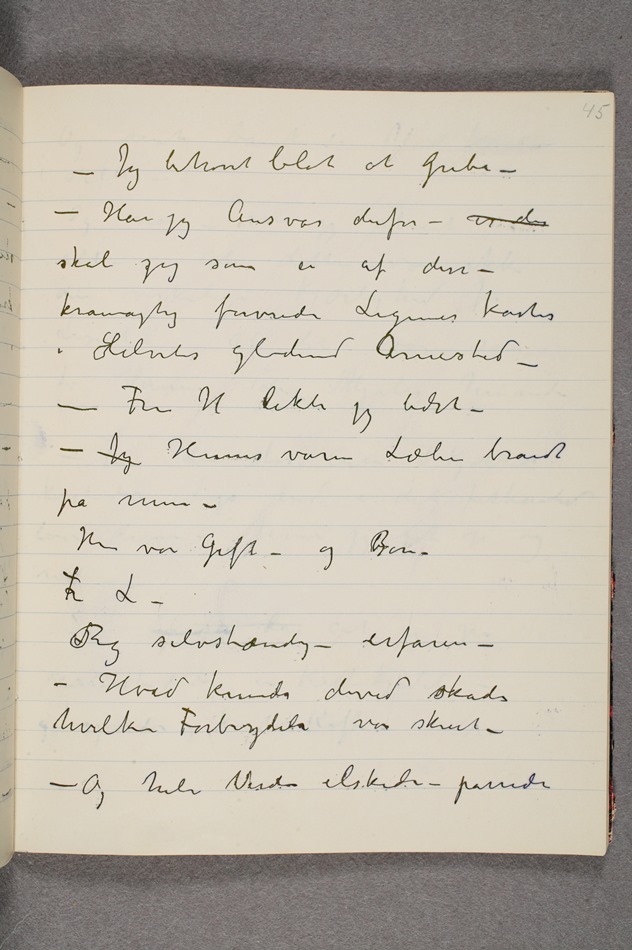 45
— Jeg behøvet blot at Gribe —
— Har jeg Ansvar derfor — er der
skal jeg som en af disse —
krampagtig forvredne Legemer kastes
i Helvetes glødend Arnested —
— Fru H lekte jeg bedst —
— Jeg Hennes varme Læber brændt
på mine —
Hun var Gift — og Barn —
Fr L —
Rig selvstændig — erfaren —
— Hvad kunde derved skades
hvilken Forbrydelse var skeet —
— Og hele Verden elskede — parrede